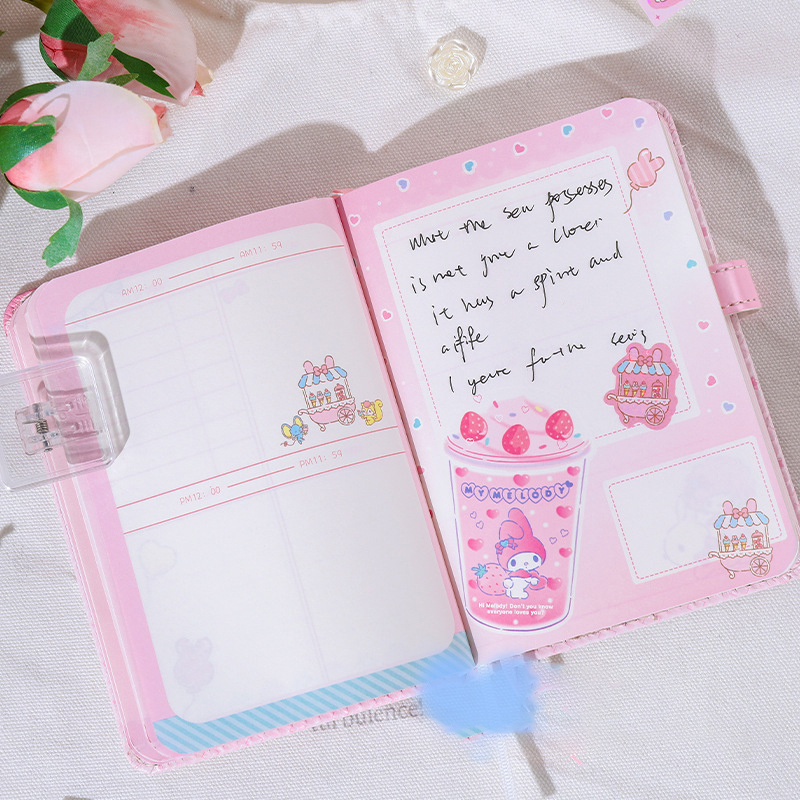 AM12: 00 AM11: 59
PM12: 00 PM11: 59
what the sea possesses
is not give a
it has a spirit and
a life
I for the
MY MELODY
Hi Melody! Don't you know
everyone loves you?
turbulence